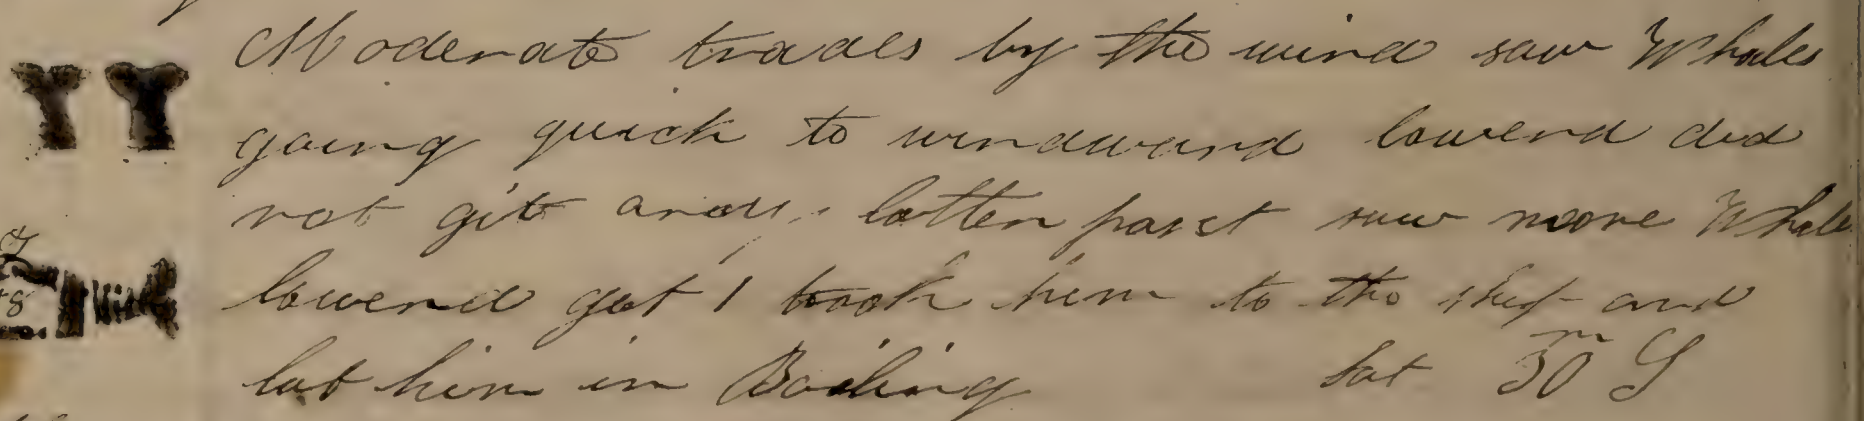 Moderate trades by the wind saw Whales
going quick to windward lowerd did
not git any latter part saw more Whales
lowerd got 1 took him to the ship and
him in Boiling Lat 30 m S